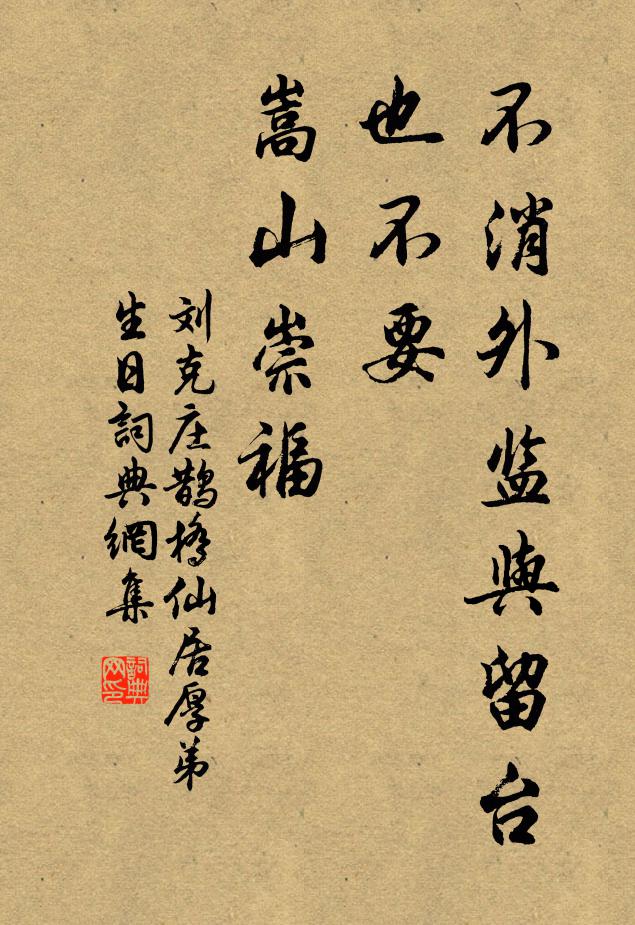 不消外监與留台
也不要
嵩山崇福
刘克庄鵲橋仙居厚弟
生日詞典網集
詞典网印